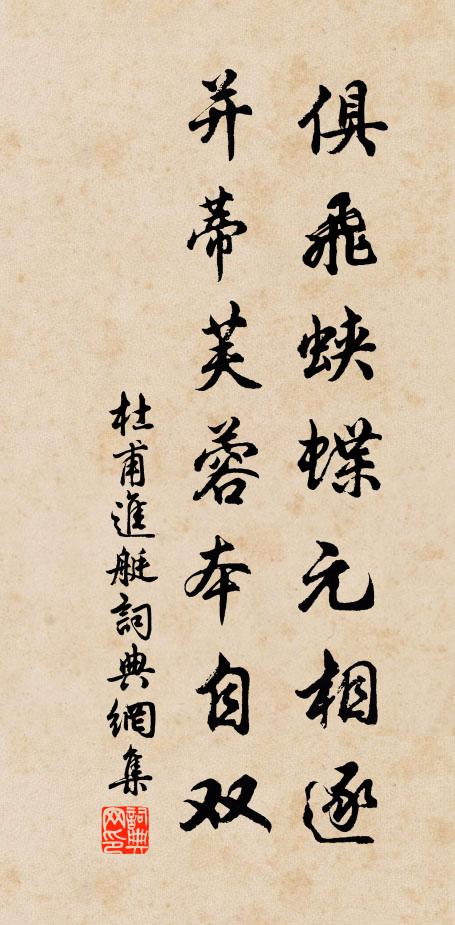 俱飛蛺蝶元相逐
并蒂芙蓉本自双
杜甫進艇詞典網集
詞典网印